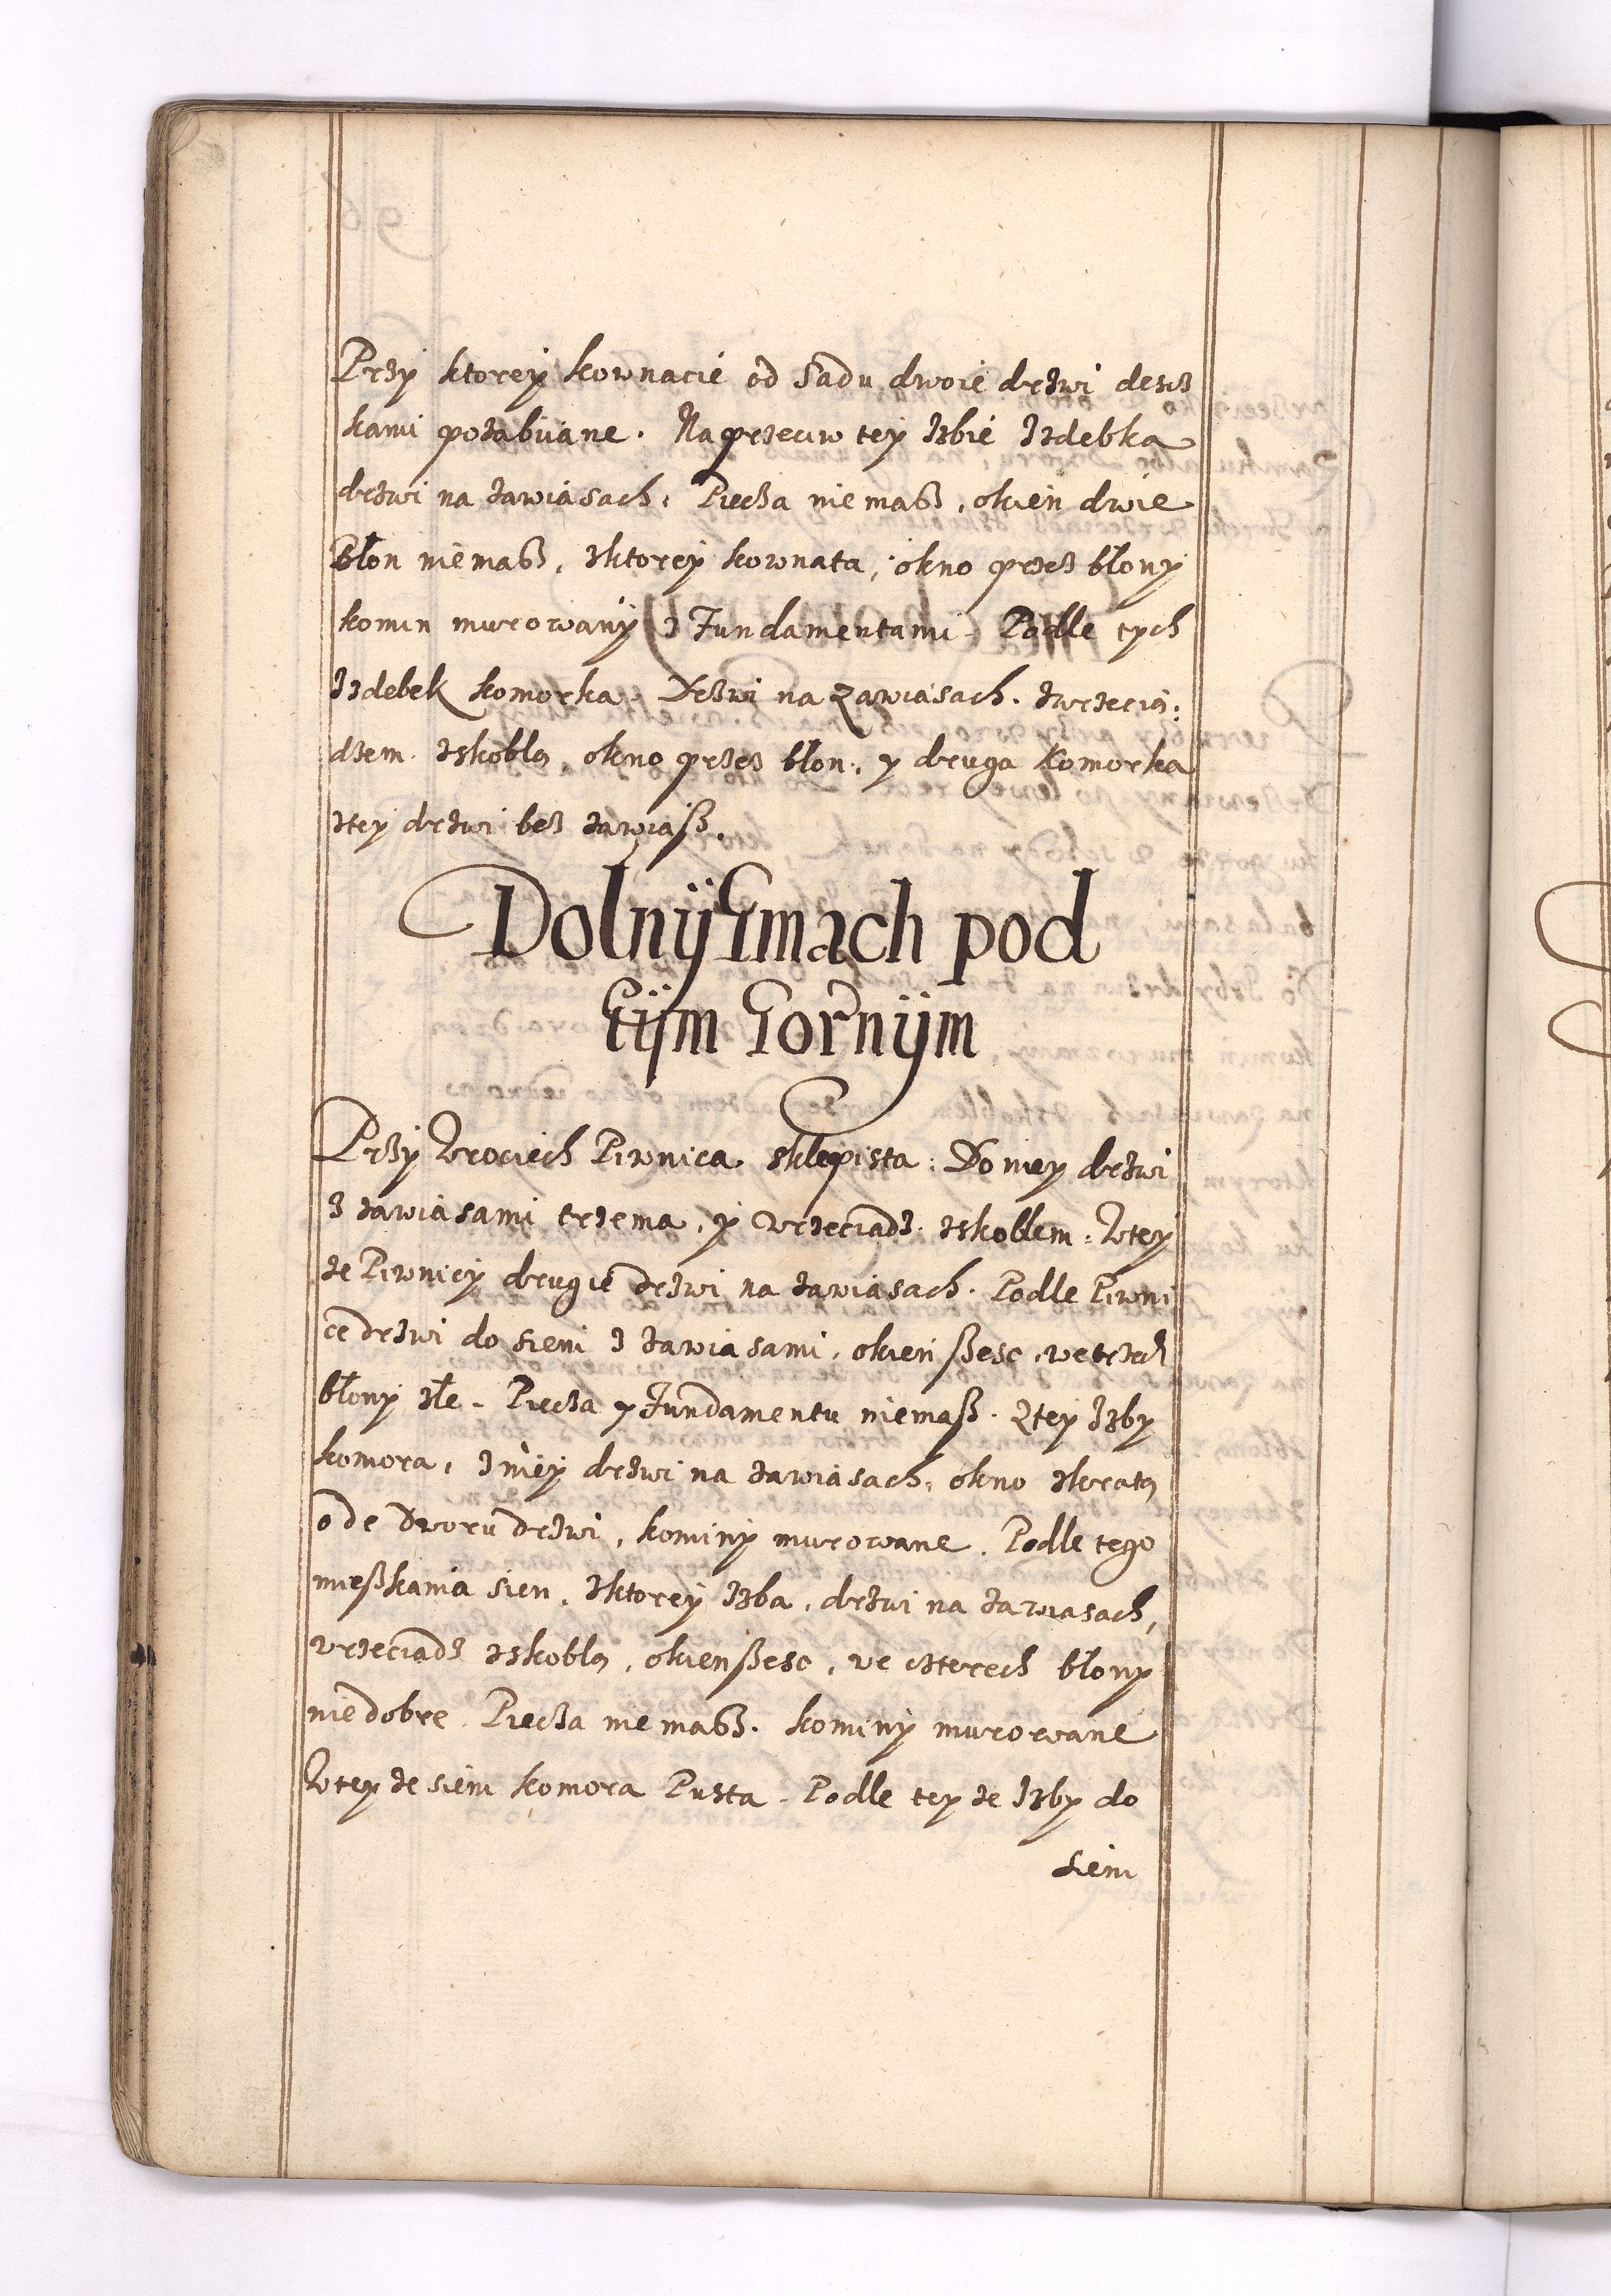 Przy ktorey kownacie od Sadu dwoie drzwi descz
kami pozabiiane. Naprzeciw tey Izbie Izdebka
drzwi na zawiasach, Piecza niemasz, okien dwie
Błon niemasz, zktorey kownata, okno przez błony
komin murowany z Fundamentami. Podle tych
Izdebek komorka. Drzwi na Zawiasach. zwrzecią:
dzem. zskoblą, okno przez błon, y druga Komorka
ztey drzwi bez zawiaß.
Dolny Gmach pod
tÿm Gornÿm
Przy Wrociech Piwnica, sklepista: Do niey drzwi
z zawiasami trzema, y wrzeciądz, zskoblem. Wtey
ze Piwnicy drugie drzwi na zawiasach. Podle Piwni
ce drzwi do sieni z zawiasami, okien ßesc, wetrzech
błony złe. Piecza y Fundamentu niemaß. Ztey Izby
komora, z niey drzwi na zawiasach, okno zkratą
ode Dworu drzwi, kominy murowane. Podle tego
mießkania sien, zktorey Izba, drzwi na zawiasach,
wrzeciądz zskoblą, okien ßesc, we czterech błony
niedobre. Piecza niemasz. kominy murowane
Wtey ze sieni komora Pusta. Podle tey ze Izby do
sieni